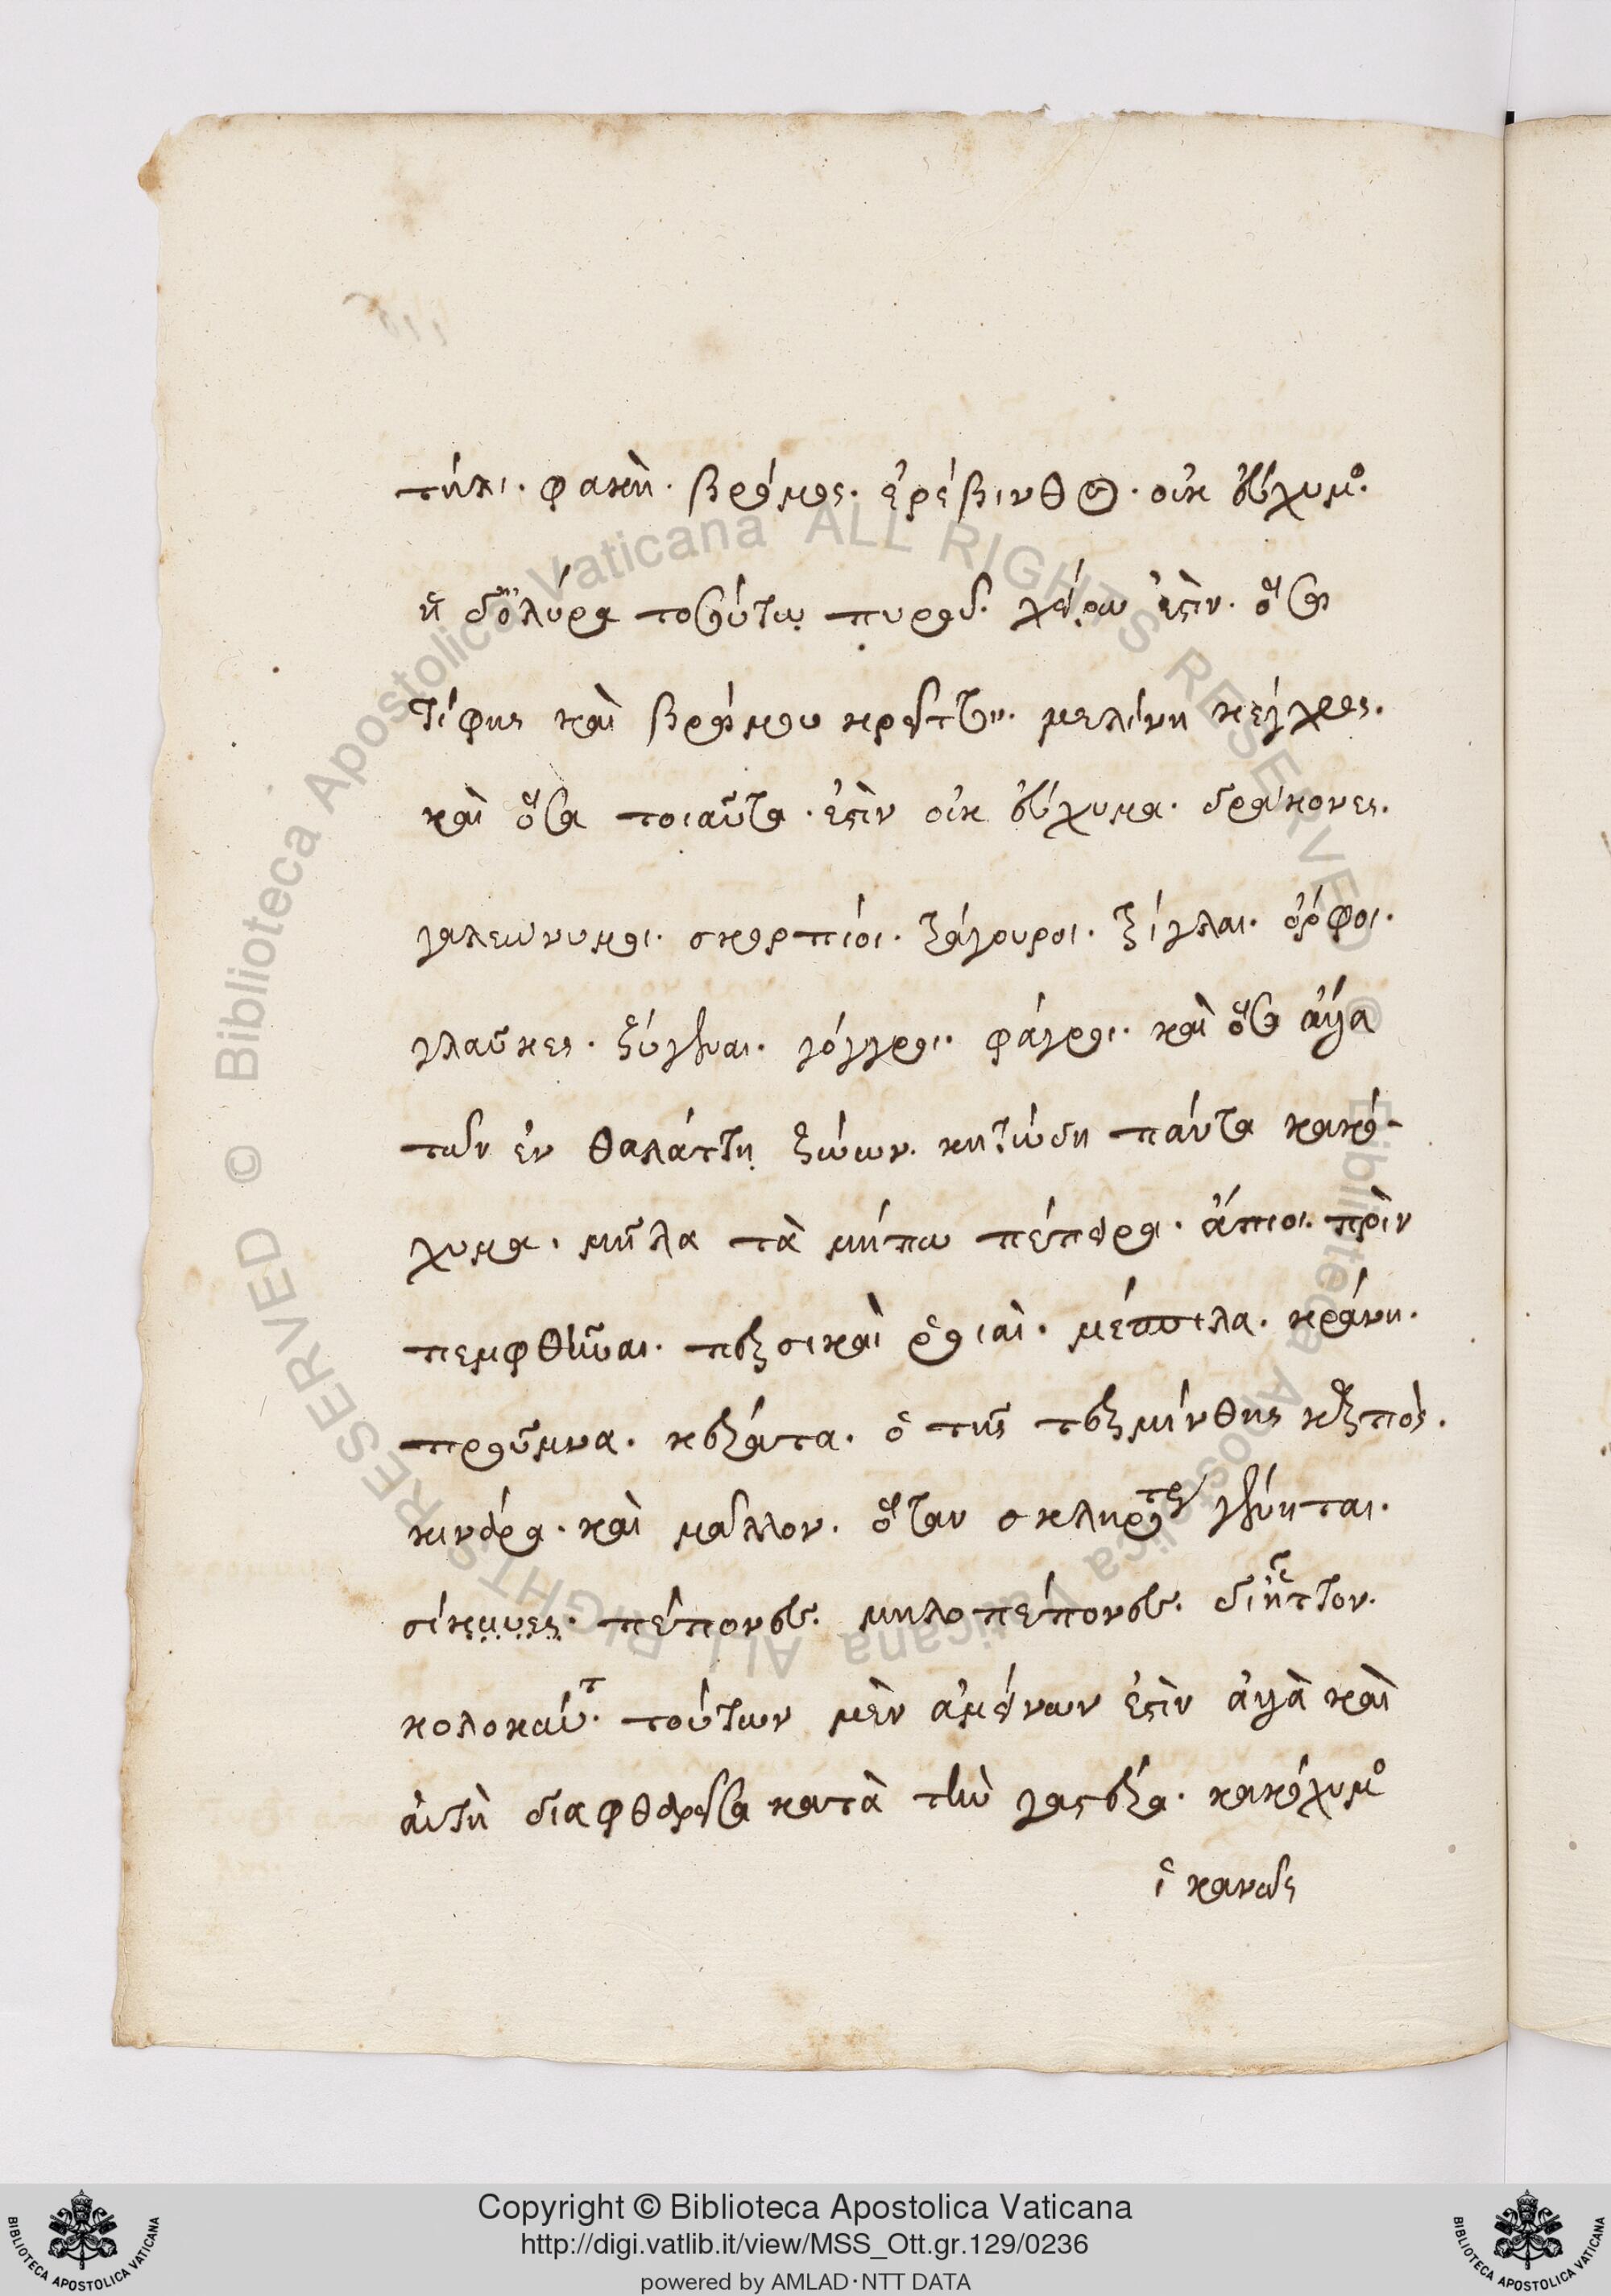 τήλι. φακὴ. βρόμος. ἐρέβινθος. οὐκ εὔχυμο.
ἡ δ' ὀλύρα τοσούτω πυροῦ χείρων ἐστὶν. ὅσω
τίφης καὶ βρόμου κρείττων. μελίνη κέγχρος.
καὶ ὅσα τοιαῦτα. ἐστὶν οὐκ εὔχυμα. δράκονες.
γαλεώνυμοι. σκορπίοι. τράγουροι. τρίγλαι. ὀρφοι.
γλαῦκες. ζύγεναι. γόγγροι. φάγροι. καὶ ὅσα ἄλλα
τῶν ἐν θαλάττη ζώων. κητώδη πάντα κακό-
χυμα. μῆλα τὰ μήπω πέπειρα. ἄπιοι. πρὶν
πεμφθῆναι. περσικαὶ ροιαὶ. μέσπιλα. κράνη.
προῦμνα. κεράτια. ὁ τῆς τερμίνθης καρπὸς.
κινάρα. καὶ μᾶλλον. ὅταν σκληροτέρα γένηται.
σίκυες. πέπονες. μηλοπέπονες. διῆττον.
κολοκύντ. τούτων μὲν ἀμείνων ἐστὶν ἀλλὰ καὶ
αὐτὴ διαφθαρεῖσα κατὰ τὴν γαστέρα. κακόχυμο
ἱκανῶς
Copyright © Biblioteca Apostolica Vaticana
http://digi.vatlib.it/view/MSS_Ott.gr.129/0236
powered by AMLAD·NTT DATA
BIBLIOTECA APOSTOLICA VATICANA
BIBLIOTECA APOSTOLICA VATICANA
© Biblioteca Apostolica Vaticana ALL RIGHTS RESERVED
© Biblioteca Apostolica Vaticana ALL RIGHTS RESERVED